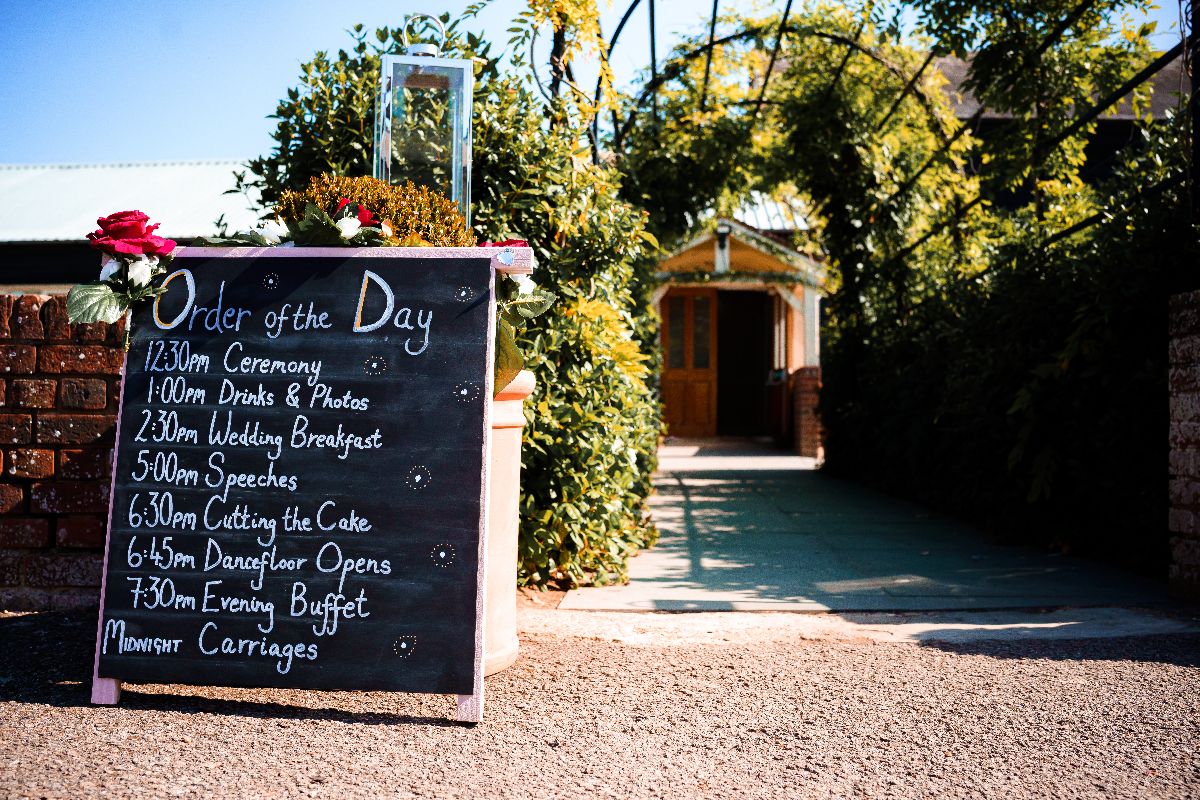 Order of the Day
12:30pm Ceremony
1:00pm Drinks & Photos
2:30pm Wedding Breakfast
5:00pm Speeches
6:30pm Cutting the Cake
6:45pm Dancefloor Opens
7:30pm Evening Buffet
MIDNIGHT Carriages